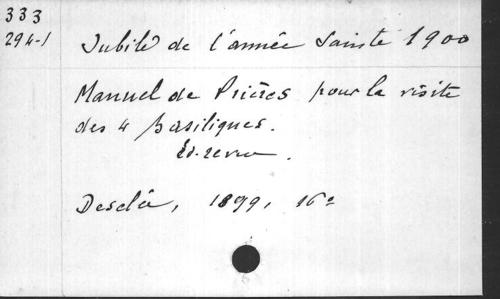 333
294-1
Jubilé de l'année Sainte 1900
Manuel de Prières pour la visite
des 4 Basiliques.
Ed. revue.
Desclée, 1899, 16º